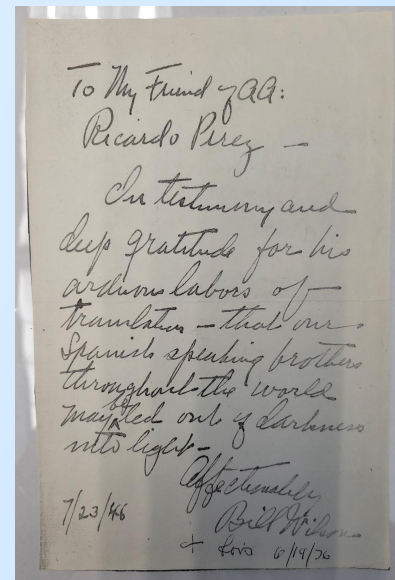 To My Friend of AA:
Ricardo Perez —
In testimony and
deep gratitude for his
arduous labors of
translation — that our
Spanish speaking brothers
throughout the world
may be led out of darkness
into light —
Affectionately
7/23/46
Bill Wilson
+ Lois 6/19/76